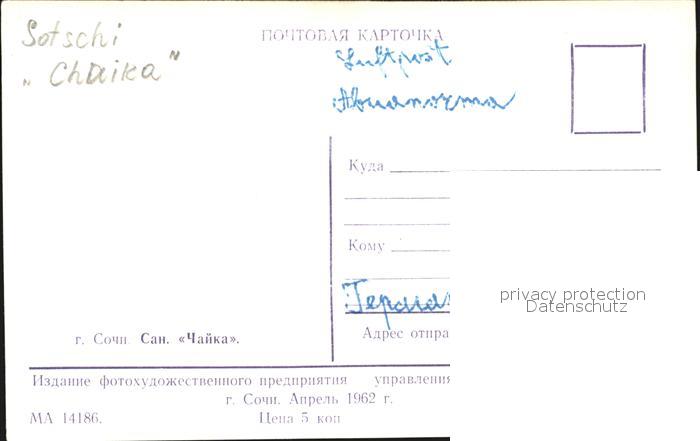 Sotschi
„Chaika"
ПОЧТОВАЯ КАРТОЧКА
Luftpost
Авиапочта
Куда
Кому
Герман
privacy protection
Datenschutz
г. Сочи Сан. «Чайка».
Адрес отпра
Издание фотохудожественного предприятия управления
г. Сочи. Апрель 1962 г.
МА 14186. Цена 5 коп